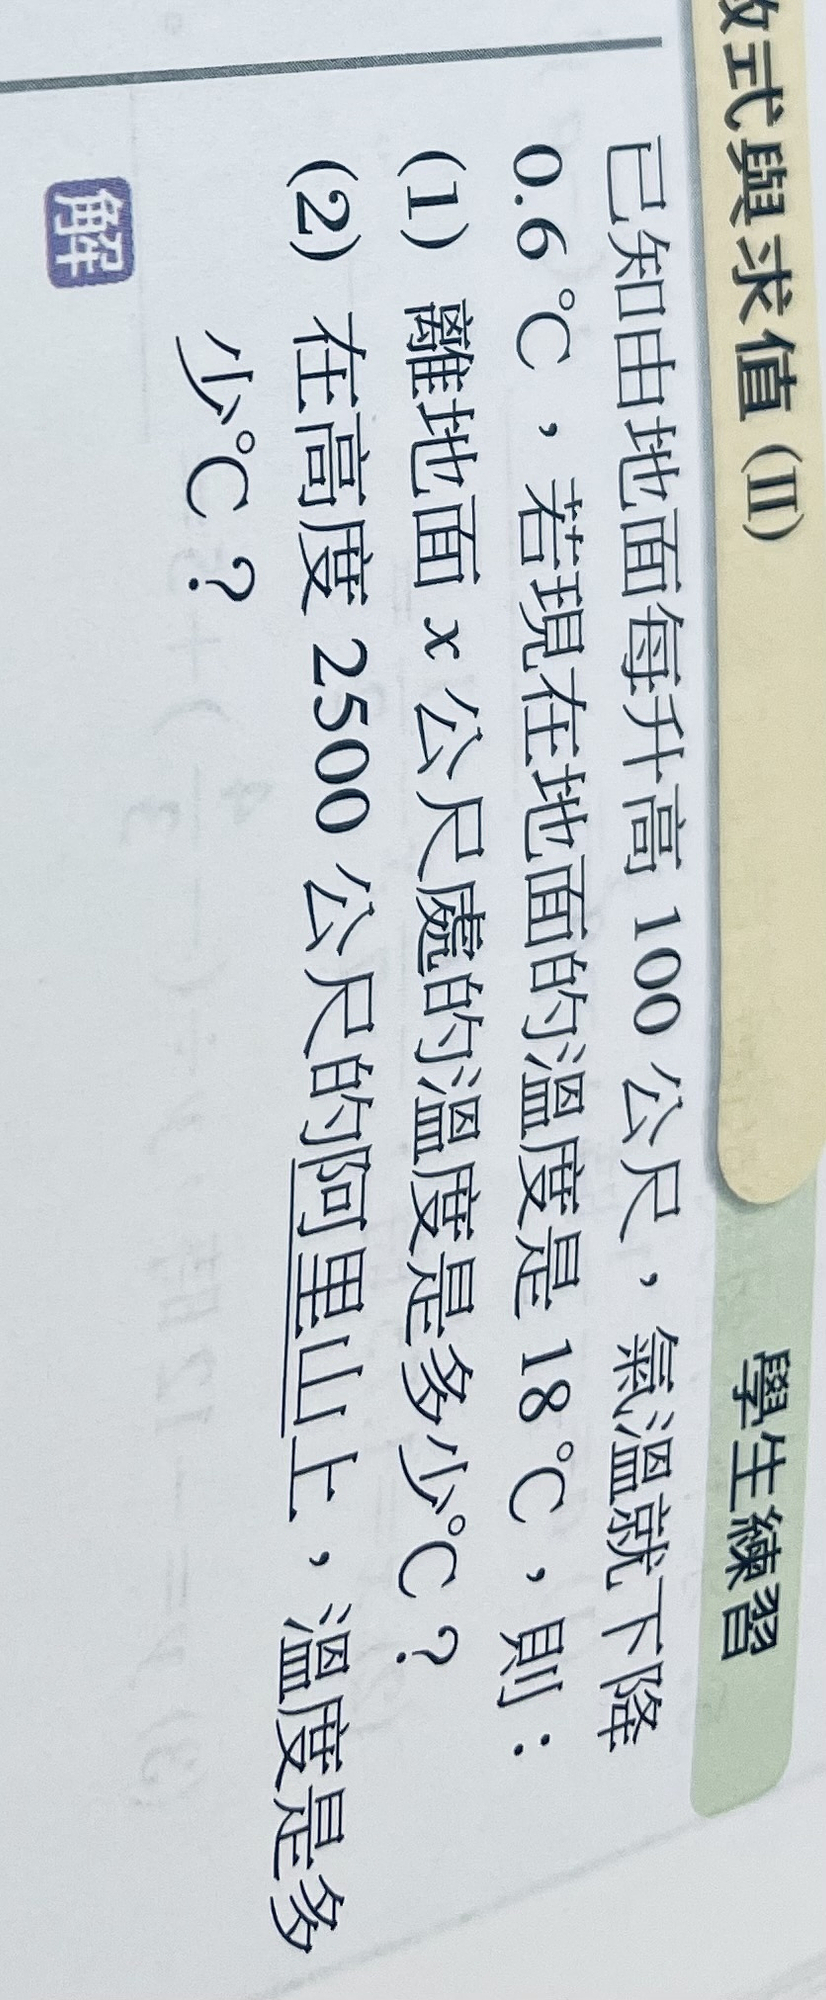 式與求值 (II)
學生練習
已知由地面每升高 100 公尺，氣溫就下降
0.6 ℃，若現在地面的溫度是 18 ℃，則：
(1) 離地面 x 公尺處的溫度是多少℃？
(2) 在高度 2500 公尺的阿里山上，溫度是多
少℃？
解